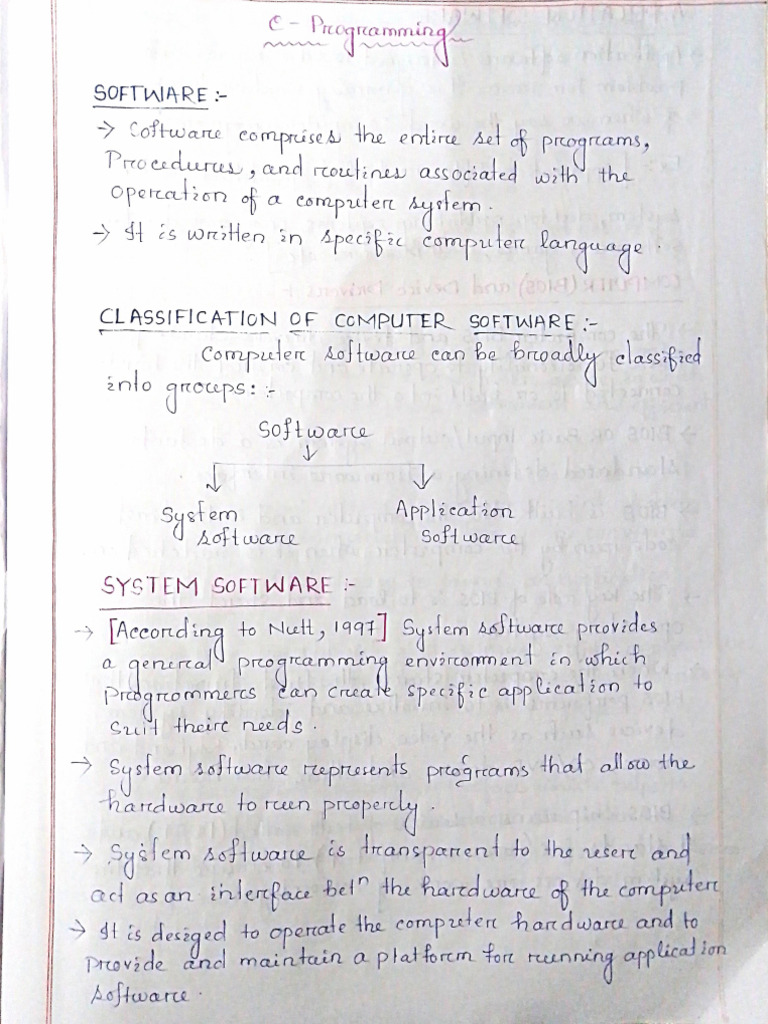 C - Programming
SOFTWARE :-
→ Software comprises the entire set of programs,
Procedures, and routines associated with the
operation of a computer system.
→ It is written in specific computer language.
CLASSIFICATION OF COMPUTER SOFTWARE :-
Computer software can be broadly classified
into groups: :-
Software
System Application
software Software
SYSTEM SOFTWARE :-
→ [According to Nutt, 1997] System software provides
a general programming environment in which
Programmers can create specific application to
suit their needs.
→ System software represents programs that allow the
hardware to run properly.
→ System software is transparent to the user and
act as an interface betⁿ the hardware of the computer
→ It is desiged to operate the computer hardware and to
Provide and maintain a platform for running application
software.